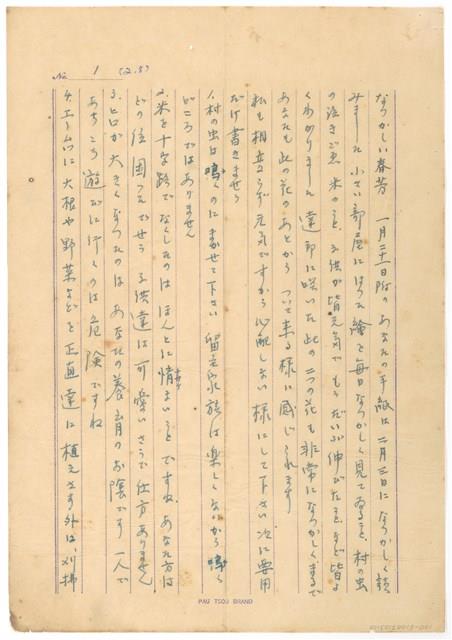 No 1 (2.5)
なつかしい春芳 一月二十一日附のあなたの手紙は二月三日になつかしく読
みました 小さい部屋にはつた繪を毎日なつかしく見てゐること、村の虫
の泣きごゑ 米のこと、子供が皆元気で もうだいぶ伸びたことなど皆よ
くわかりました 達郎に咲いた此の二つの花も非常になつかしくまるで
あなたも此の花のあとから ついて来る様に感じられます
私も相立らず元気ですから心配しない様にして下さい 次に要用
だけ書きませう
1、村の虫は鳴くのにまかせて下さい 留守家族は楽しくないから鳴く
どころではありません
2、米を十字路でなくしたのは ほんとに惜しいことですね、あなた方は
どの位困つたでせう 子供達は可愛いさうで仕方ありません
3、ヒロが大きくなつたのは あなたの養育のお陰です 一人で
あちこち遊びに行くのは危険ですね
4、エームに大根や野菜などを正直達に植えさす外は、刈掃
PAU TSOU BRAND